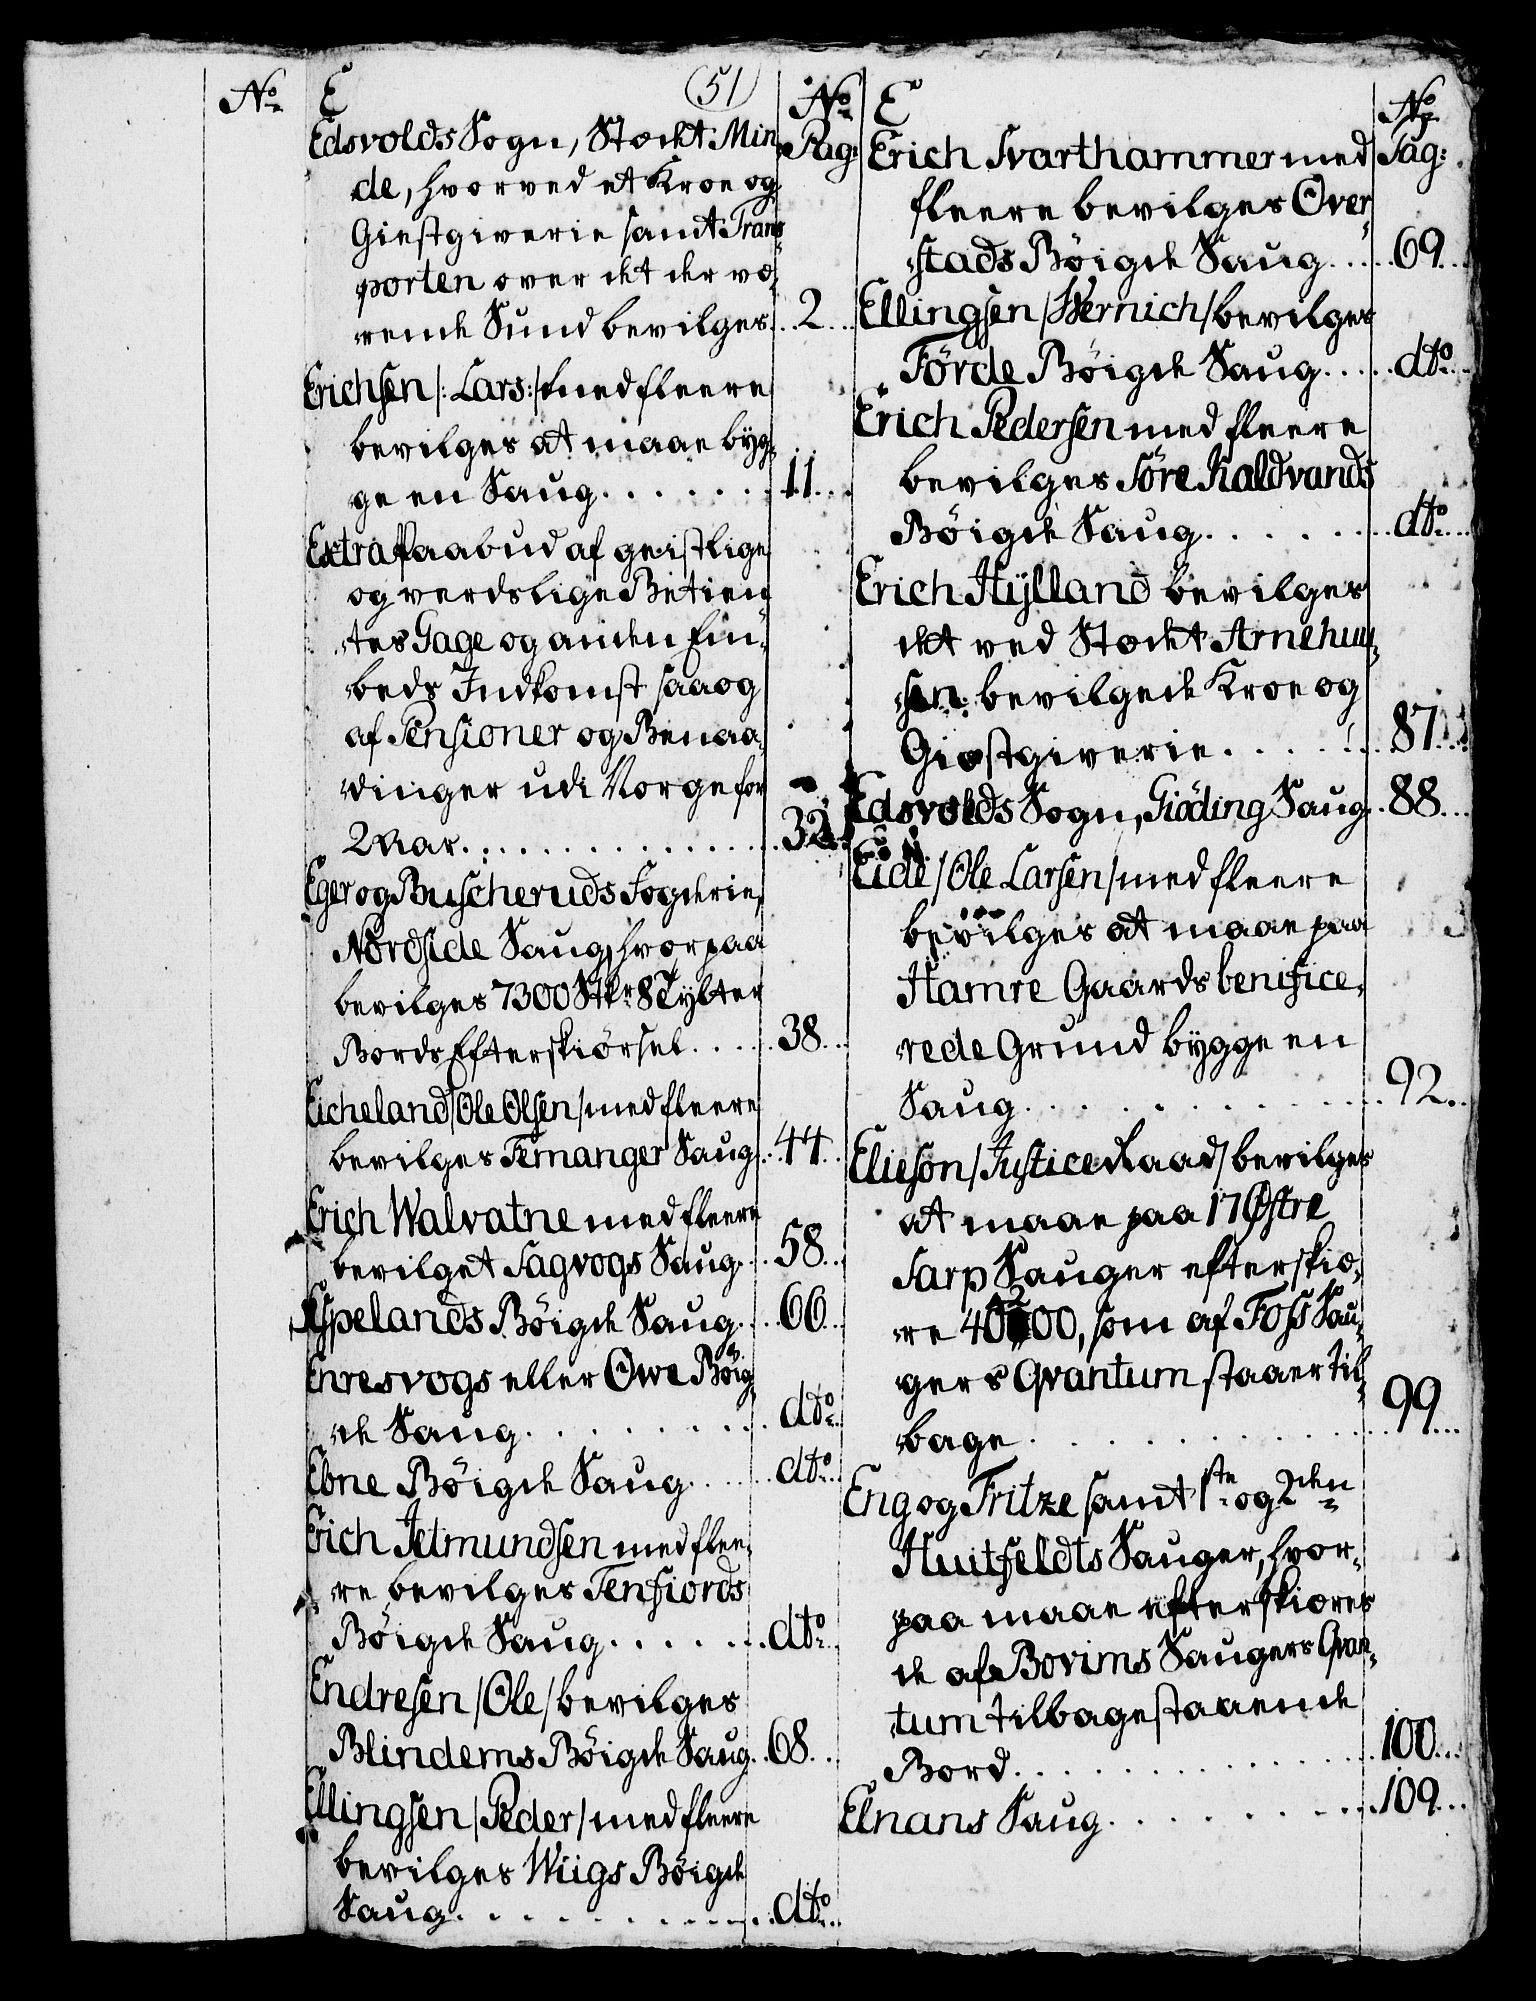 No
E
51
No
Pag:
Edsvolds Sogn, Stædet Min-
de, hvorved et Kroe og
Giestgiverie samt Trans-
porten over det der væ-
rende Sund bevilges . . 2 . .
Erichsen /: Lars:/ med fleere
bevilges at maae byg-
ge en Saug . . . . . . . 11 . . .
Extra Paabud af geistlige
og verdslige Betien-
tes Gage og anden Em-
beds Indkomst saa og
af Pensioner og Benaa-
dinger udi Norge for
2 Aar . . . . . . . . . . . 32 . .
Eger og Buscheruds Fogderie,
Nordside Saug, hvorpaa
bevilges 7300 Stkr 8 Tylter
Bords Efterskiørsel . . . . 38 . . .
Eicheland /Ole Olsen/ med fleere
bevilges Femanger Saug . . 44 . .
Erich Walvatne med fleere
bevilget Sagvogs Saug . . . 58 . . .
Espelands Böigde Saug . . . 66 . . .
Enresvogs eller Owe Böig-
de Saug . . . . . . . . . dto . .
Ebne Böigde Saug . . . . . dto . .
Erich Jetmundsen med flee-
re bevilges Tenfiords
Böigde Saug . . . . . . . dto . .
Endresen /Ole/ bevilges
Blindems Böigde Saug . . 68 . . .
Ellingsen /Peder/ med fleere
bevilges Wiigs Böigde
Saug . . . . . . . . . . . dto . .
E
No
Pag:
Erich Svarthammer med
fleere bevilges Over-
stads Böigde Saug . . . . 69 . . .
Ellingsen /Wernich/ bevilges
Förde Böigde Saug . . . . dto . .
Erich Pedersen med fleere
bevilges Söre Kaldvands
Böigde Saug . . . . . . . dto . . .
Erich Hylland bevilges
det ved Stædet Arnehuu-
sen bevilgede Kroe og
Giæstgiverie . . . . . . . 87 . . .
Edsvolds Sogn, Giöding Saug . . 88 . . .
Eide /Ole Larsen/ med fleere
bevilges at maae paa
Hamre Gaards benifice-
rede Grund bygge en
Saug . . . . . . . . . . . 92 . .
Elieson /Justice Raad/ bevilges
at maae paa 17 Østre
Sarp Sauger efterskiæ-
re 40200, som af Foss Sau-
gers Qvantum staaer til-
bage . . . . . . . . . . . 99 . . .
Eng og Fritze samt 1ste og 2den
Huitfeldts Sauger, hvor-
paa maae efterskiæres
de af Bovims Saugers Qvan-
tum tilbagestaaende
Bord . . . . . . . . . . . 100 . . .
Elnans Saug . . . . . . . . 109 . . .